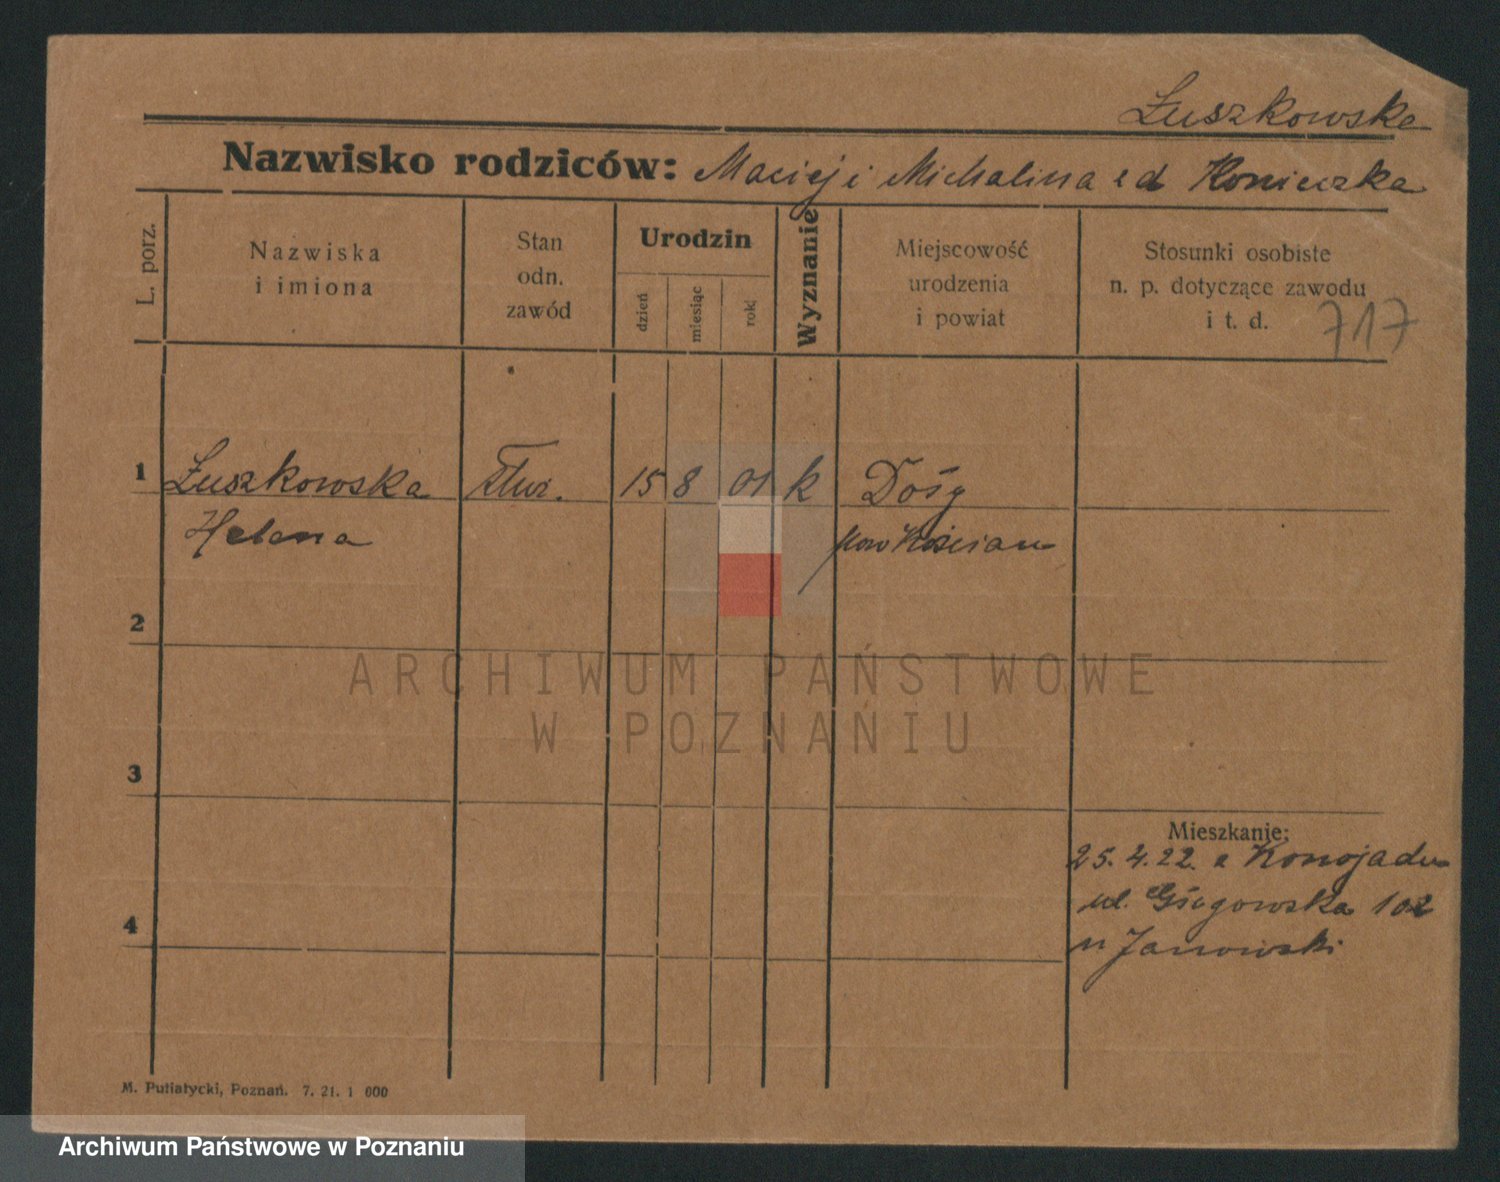 Łuszkowska
Nazwisko rodziców: Maciej i Michalina z d Konieczka
L. porz.
Nazwiska
i imiona
Stan
odn.
zawód
Urodzin
dzień
miesiąc
rok
Wyznanie
Miejscowość
urodzenia
i powiat
Stosunki osobiste
n. p. dotyczące zawodu
i t. d.
717
1 Łuszkowska 15 8 01 k
Helena pow Kościan
2
ARCHIWUM PAŃSTWOWE
W POZNANIU
3
Mieszkanie:
25. 4. 22. z Konojadu
ul. Głogowska 102
u Janowski
4
M. Putiatycki, Poznań. 7. 21. 1 000
Archiwum Państwowe w Poznaniu